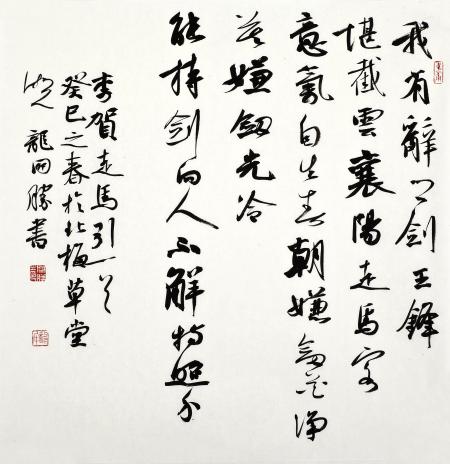 我有辭鄉劍玉鋒
堪截雲襄陽走馬客
意氣自生春朝嫌劍花淨
暮嫌劍光冷
能持劍向人不解持照身
李賀走馬引一首
癸巳之春於北梅草堂
湖人龍開勝書